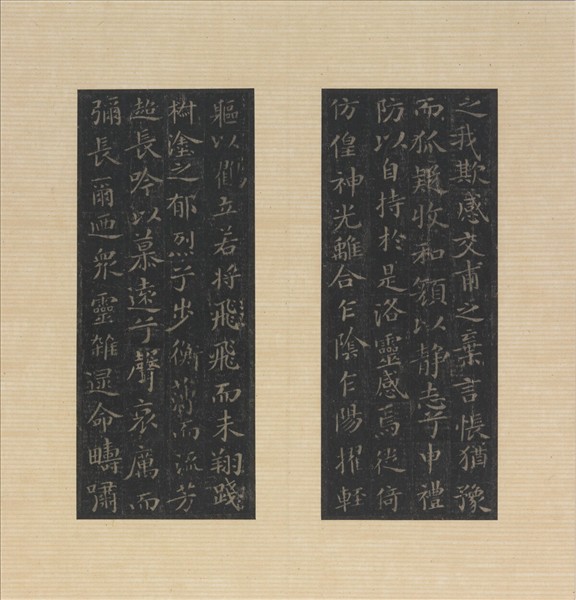 之我欺感交甫之棄言悵猶豫
而狐疑收和顏以静志兮申禮
防以自持於是洛靈感焉徙倚
仿偟神光離合乍陰乍陽擢軽
軀以立若将飛飛而未翔踐
椒塗之郁烈兮步衡薄而流芳
超長吟以慕遠兮聲哀厲而
彌長爾迺衆靈雜遝命疇嘯